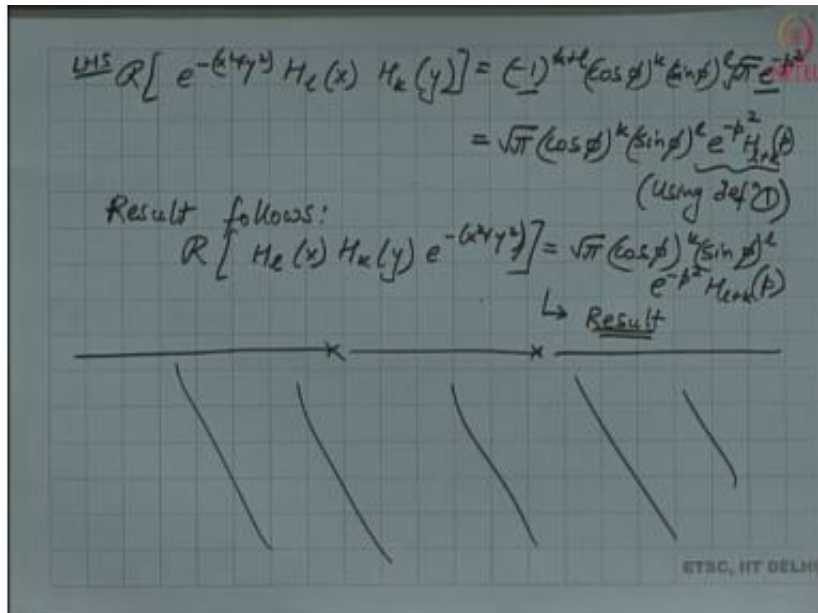 LHS R[ e^{-(x²+y²)} H_l(x) H_k(y)] = (-1)^{k+l} (cos φ)^k (sin φ)^l √π e^{-p²}
= √π (cos φ)^k (sin φ)^l e^{-p²} H_{l+k}(p)
(Using defⁿ ①)
Result follows:
R[ H_l(x) H_k(y) e^{-(x²+y²)}] = √π (cos φ)^k (sin φ)^l
e^{-p²} H_{l+k}(p)
↳ Result
ETSC, IIT DELHI